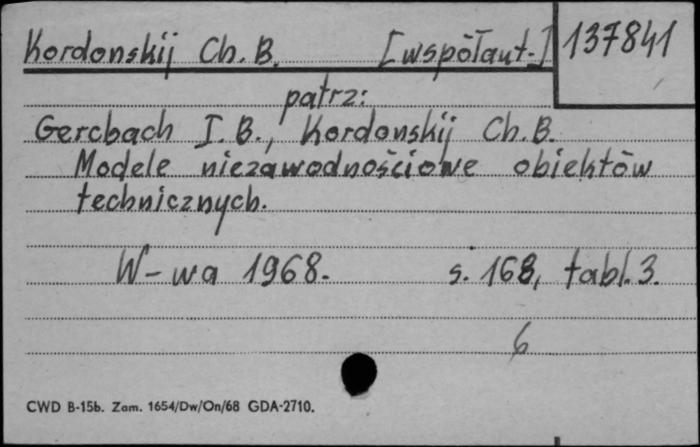 Kordonskij Ch. B. [współaut.] 137841
patrz:
Gercbach I. B., Kordonskij Ch. B.
Modele niezawodnościowe obiektów
technicznych.
W-wa 1968. s. 168, tabl. 3.
6
CWD B-15b. Zam. 1654/Dw/On/68 GDA-2710.